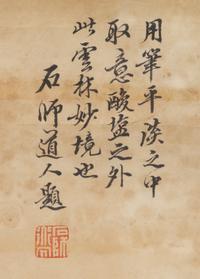 用筆平淡之中
取意酸鹽之外
此雲林妙境也
石師道人題